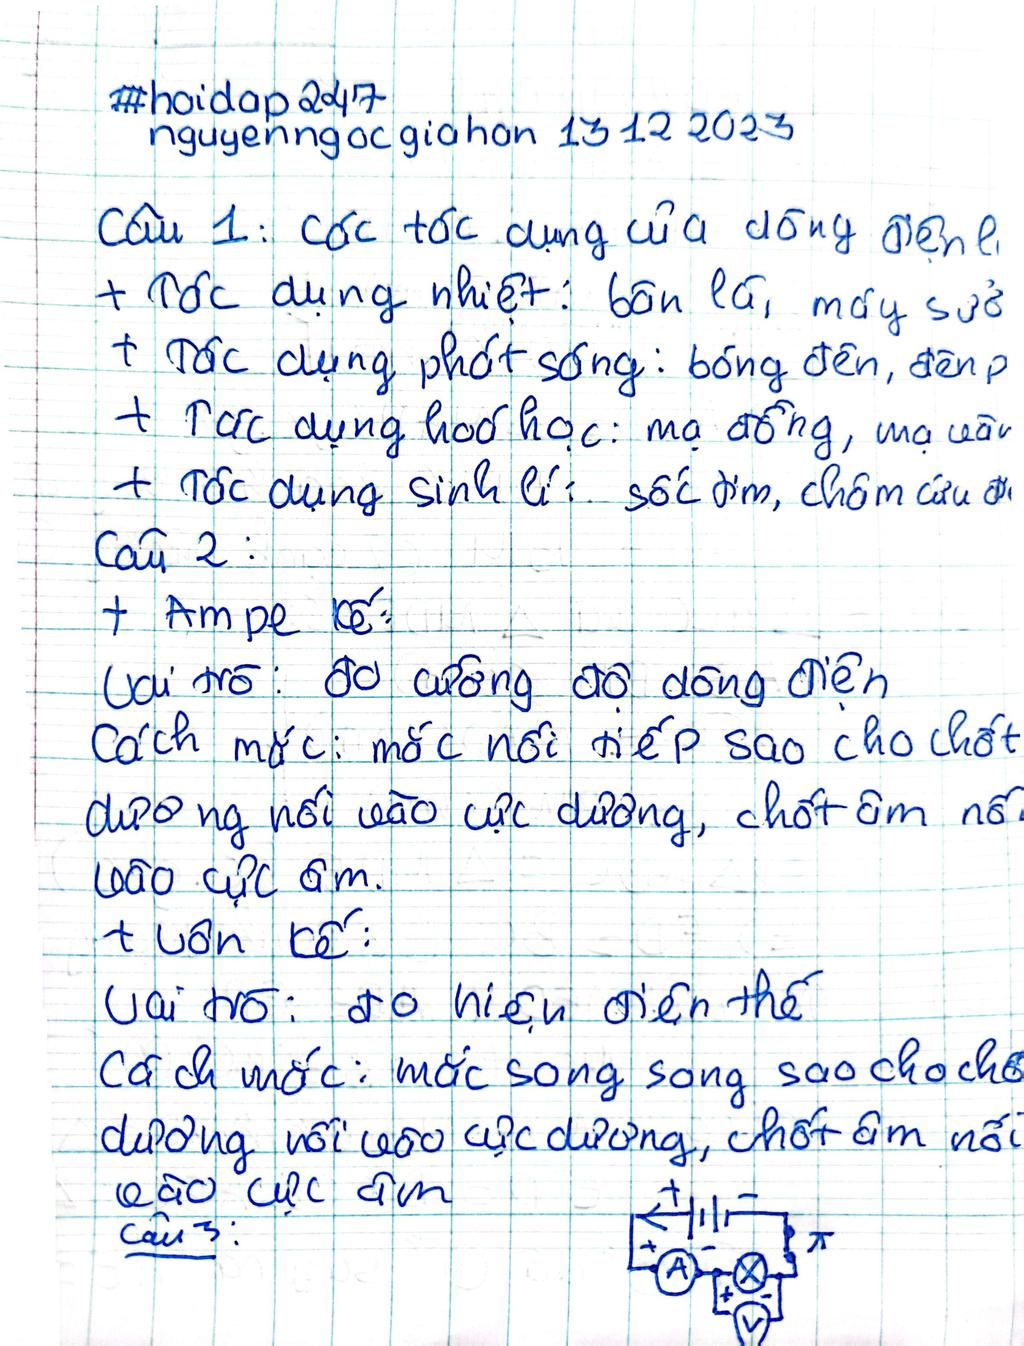 #hoidap247
nguyenngocgiahan 13 12 2023
Câu 1: Các tác dụng của dòng điện l
+ Tác dụng nhiệt: bàn là, máy sưở
+ Tác dụng phát sáng: bóng đèn, đèn p
+ Tác dụng hoá học: mạ đồng, mạ vàn
+ Tác dụng sinh lí: sốc tim, châm cứu đi
Câu 2:
+ Ampe kế:
Vai trò: đo cường độ dòng điện
Cách mắc: mắc nối tiếp sao cho chốt
dương nối vào cực dương, chốt âm nố
vào cực âm.
+ Vôn kế:
Vai trò: đo hiệu điện thế
Cách mắc: mắc song song sao cho chố
dương nối vào cực dương, chốt âm nối
vào cực âm
Câu 3:
+ -
+ A - X
+ -
V